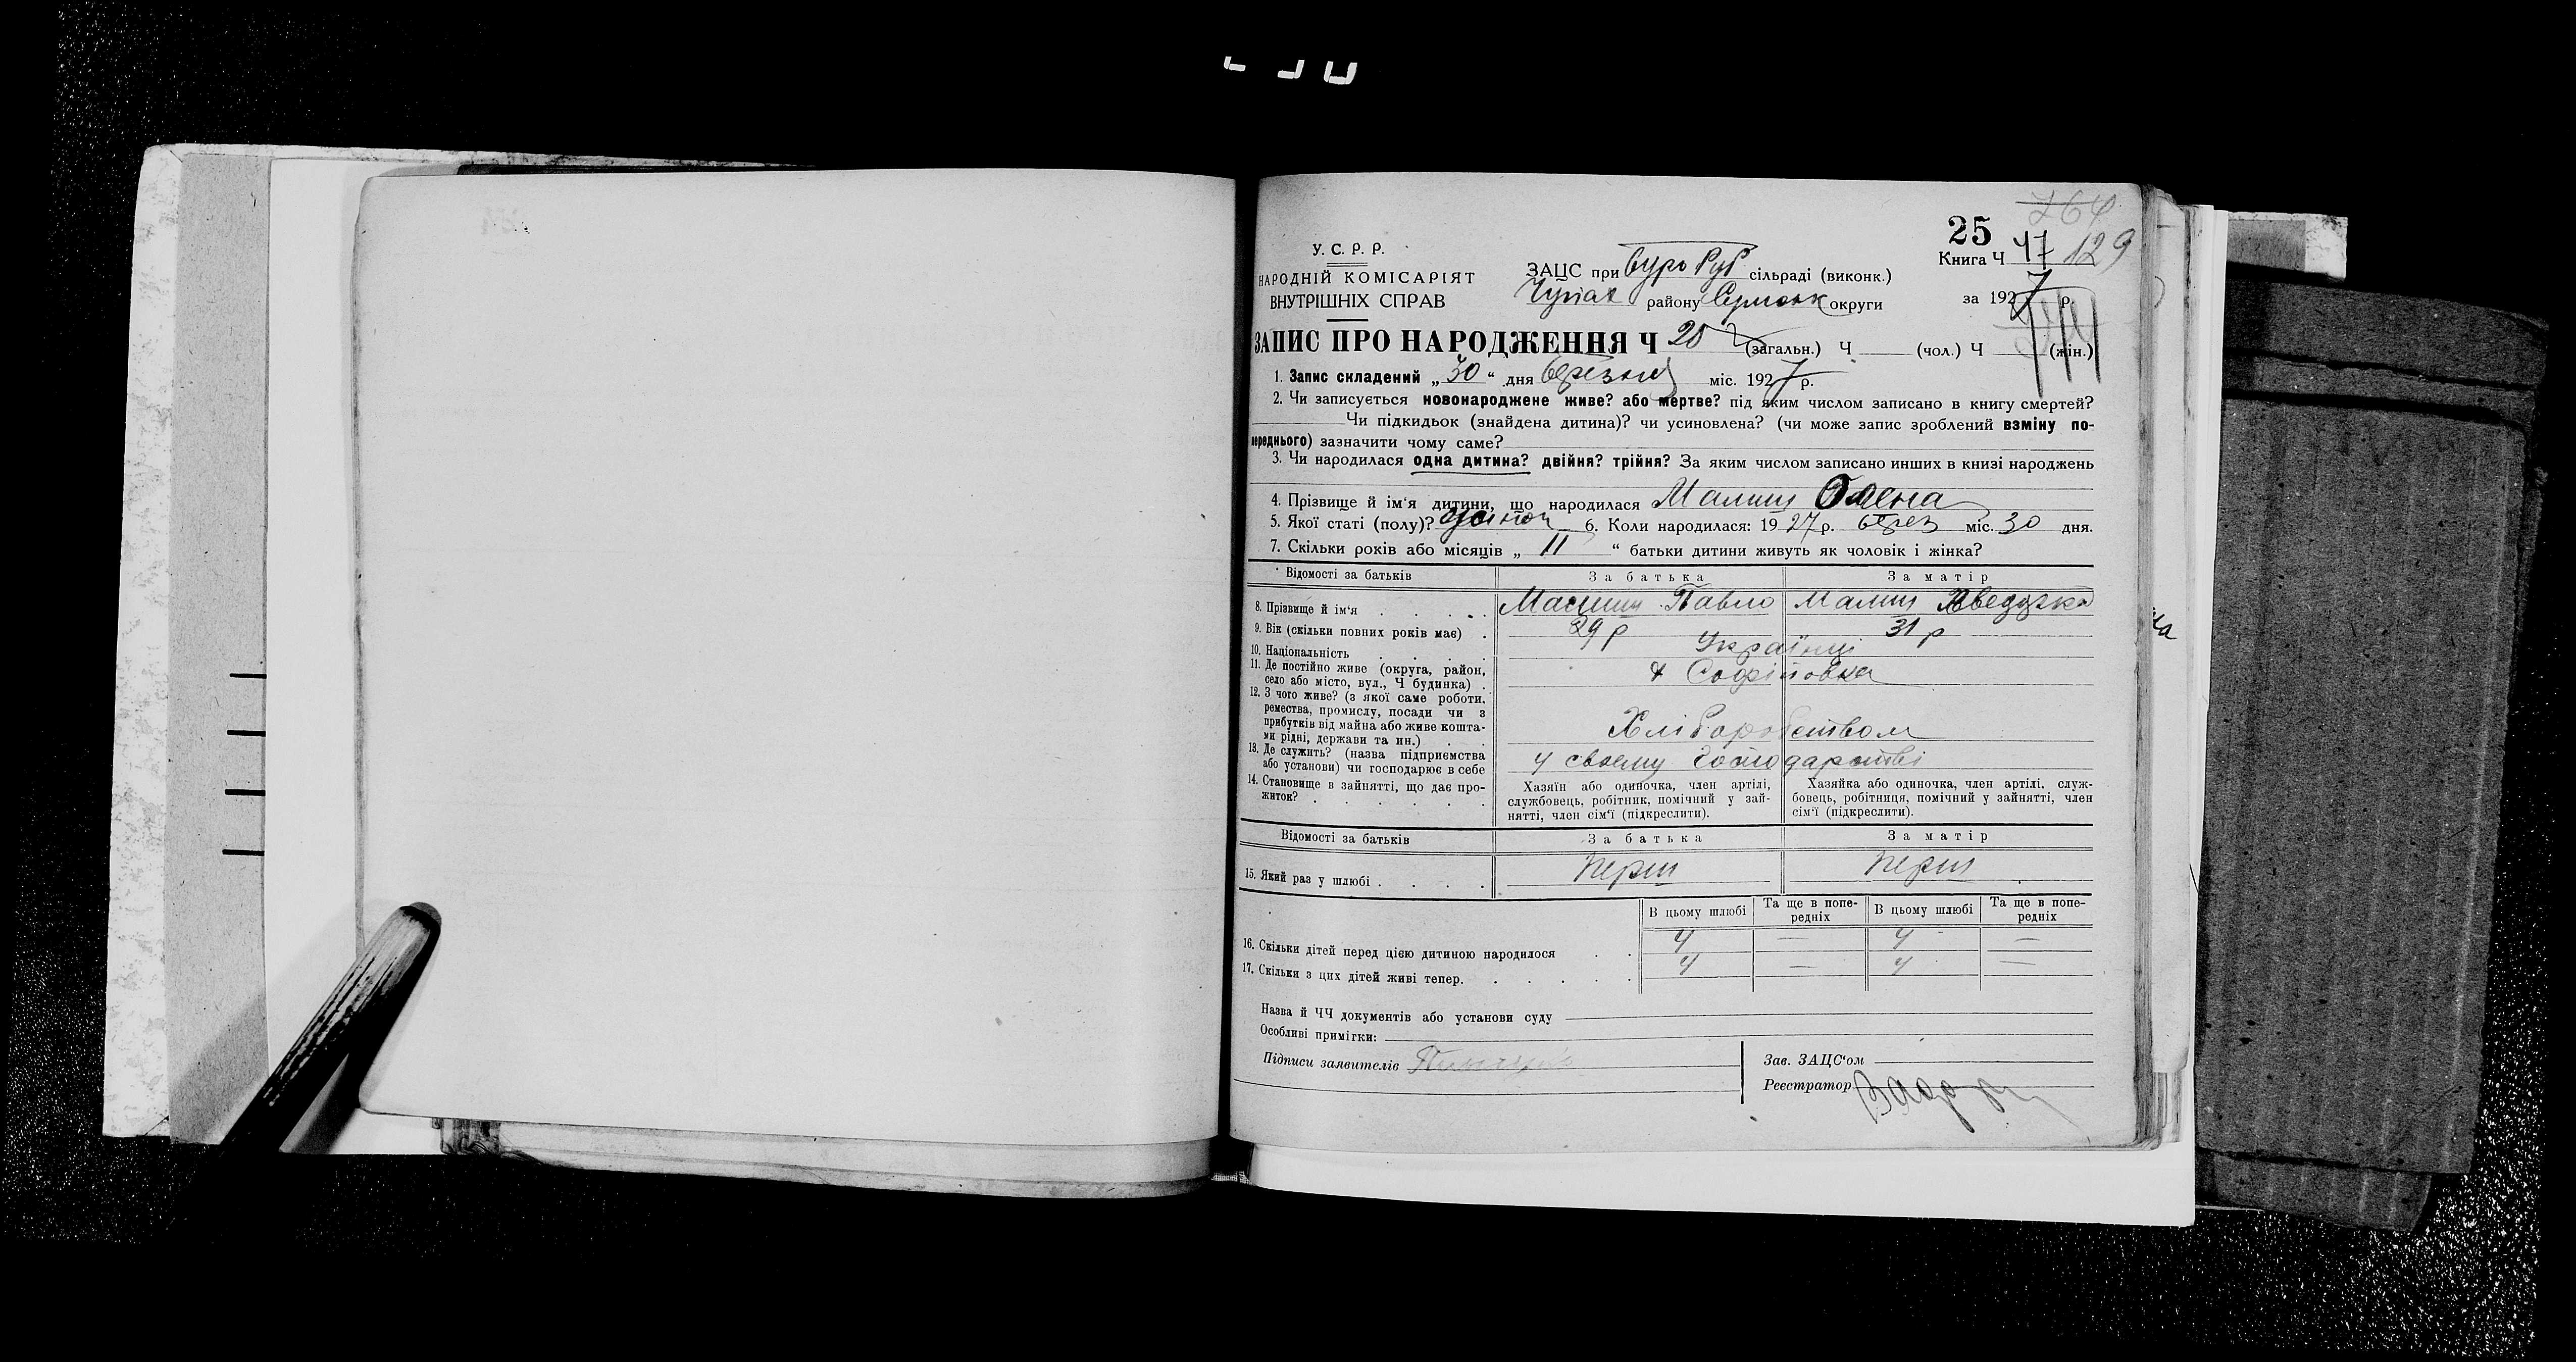 25
764
У. С. Р. Р.
НАРОДНІЙ КОМІСАРІЯТ
ВНУТРІШНІХ СПРАВ
ЗАЦС при сільраді (виконк.)
Книга Ч 47 129
району округи
за 1927 р.
ЗАПИС ПРО НАРОДЖЕННЯ Ч 20 (загальн.) Ч (чол.) Ч (жін.)
1. Запис складений „30“ дня березня міс. 1927 р.
2. Чи записується новонароджене живе? або мертве? під яким числом записано в книгу смертей?
Чи підкидьок (знайдена дитина)? чи усиновлена? (чи може запис зроблений взміну по-
переднього) зазначити чому саме?
3. Чи народилася одна дитина? двійня? трійня? За яким числом записано инших в книзі народжень
4. Прізвище й ім‘я дитини, що народилася Малиш Олена
5. Якої статі (полу)? жіноч 6. Коли народилася: 1927 р. берез міс. 30 дня.
7. Скільки років або місяців „ 11 “ батьки дитини живуть як чоловік і жінка?
Відомості за батьків За батька За матір
8. Прізвище й ім‘я Малиш Павло Малиш
9. Вік (скільки повних років має) 29 р 31 р
10. Національність Українці
11. Де постійно живе (округа, район,
село або місто, вул., Ч будинка) Софіївка
12. З чого живе? (з якої саме роботи,
ремества, промислу, посади чи з
прибутків від майна або живе кошта-
ми рідні, держави та ин.) Хліборобством
13. Де служить? (назва підприємства
або установи) чи господарює в себе у своєму господарстві
14. Становище в зайнятті, що дає про-
житок?
Хазяїн або одиночка, член артілі,
службовець, робітник, помічний у зай-
нятті, член сім‘ї (підкреслити).
Хазяйка або одиночка, член артілі, служ-
бовець, робітниця, помічний у зайнятті, член
сім‘ї (підкреслити).
Відомості за батьків За батька За матір
15. Який раз у шлюбі перш перш
В цьому шлюбі Та ще в попе-
редніх В цьому шлюбі Та ще в попе-
редніх
16. Скільки дітей перед цією дитиною народилося 4 — 4 —
17. Скільки з цих дітей живі тепер. 4 — 4 —
Назва й ЧЧ документів або установи суду
Особливі примітки:
Підписи заявителів
Зав. ЗАЦС‘ом
Реєстратор